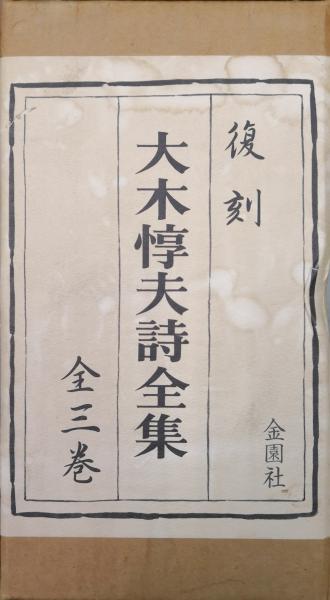 復刻
大木惇夫詩全集
全三巻
金園社